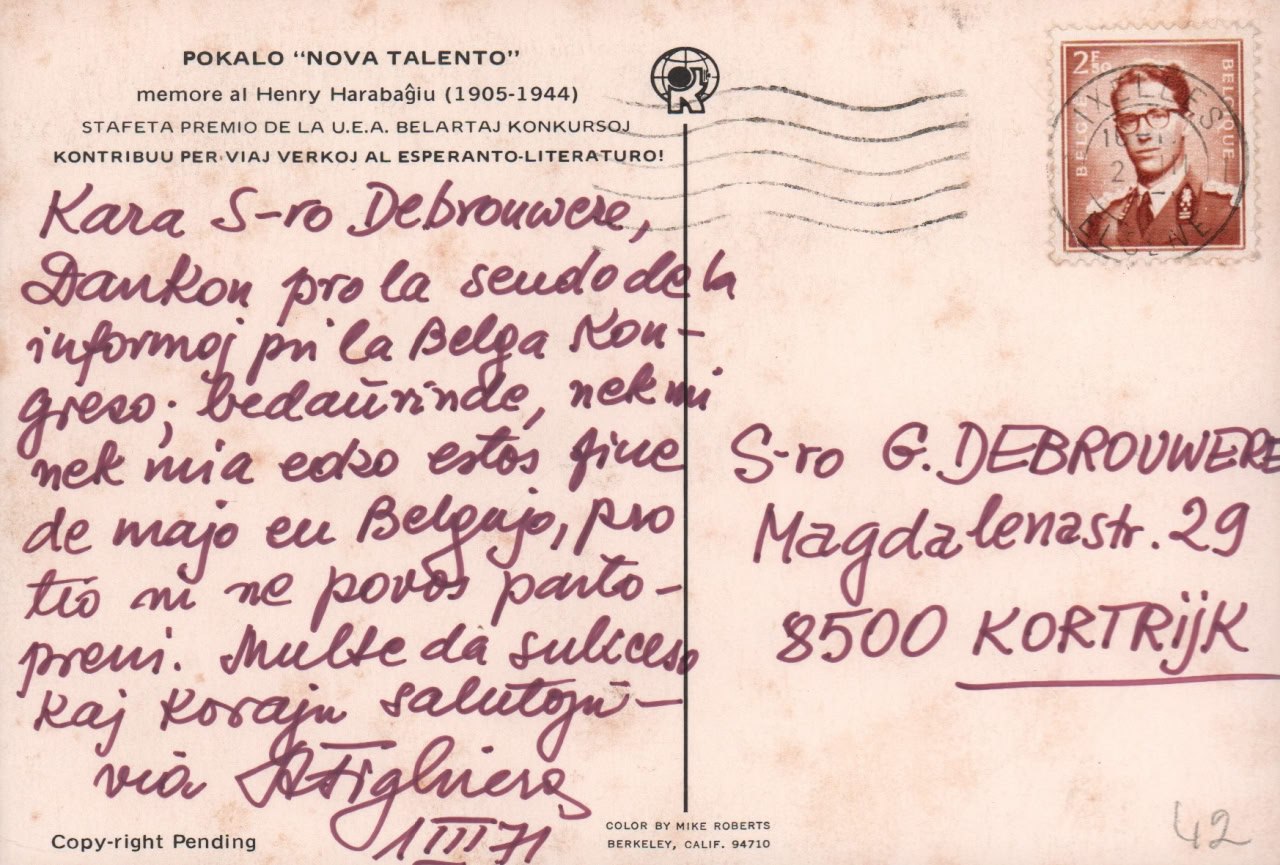 POKALO “NOVA TALENTO”
memore al Henry Harabaĝiu (1905-1944)
STAFETA PREMIO DE LA U.E.A. BELARTAJ KONKURSOJ
KONTRIBUU PER VIAJ VERKOJ AL ESPERANTO-LITERATURO!
Kara S-ro Debrouwere,
Dankon pro la sendo de la
informoj pri la Belga Kon-
greso; bedaŭrinde, nek mi
nek mia edzo estos fine
de majo en Belgujo, pro
tio ni ne povos parto-
preni. Multe da sukceso
kaj korajn salutojn –
via
1 III 71
Copy-right Pending
COLOR BY MIKE ROBERTS
BERKELEY, CALIF. 94710
2F50
BELGIE
BELGIQUE
IXELLES
ELSENE
S-ro G. DEBROUWERE
Magdalenastr. 29
8500 KORTRIJK
42